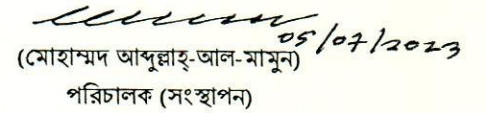 05/07/2023
(মোহাম্মদ আব্দুল্লাহ্-আল-মামুন)
পরিচালক (সংস্থাপন)